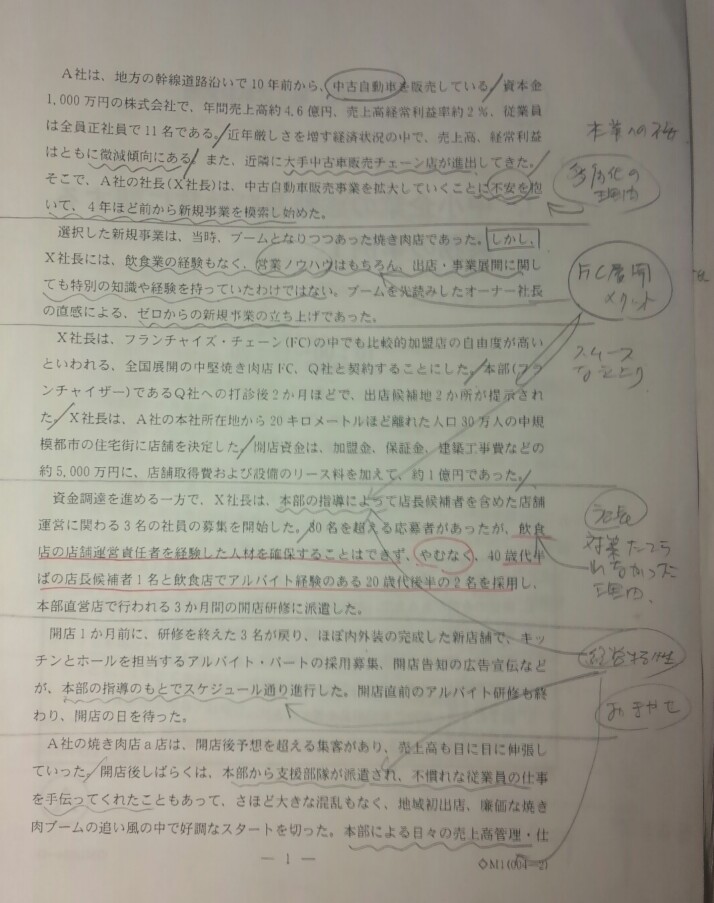 A社は、地方の幹線道路沿いで10年前から、中古自動車を販売している。資本金
1,000万円の株式会社で、年間売上高約4.6億円、売上高経常利益率約2%、従業員
は全員正社員で11名である。近年厳しさを増す経済状況の中で、売上高、経常利益
はともに微減傾向にある。また、近隣に大手中古車販売チェーン店が進出してきた。
そこで、A社の社長(X社長)は、中古自動車販売事業を拡大していくことに不安を抱
いて、4年ほど前から新規事業を模索し始めた。
選択した新規事業は、当時、ブームとなりつつあった焼き肉店であった。しかし、
X社長には、飲食業の経験もなく、営業ノウハウはもちろん、出店・事業展開に関し
ても特別の知識や経験を持っていたわけではない。ブームを先読みしたオーナー社長
の直感による、ゼロからの新規事業の立ち上げであった。
X社長は、フランチャイズ・チェーン(FC)の中でも比較的加盟店の自由度が高い
といわれる、全国展開の中堅焼き肉店FC、Q社と契約することにした。本部(フラ
ンチャイザー)であるQ社への打診後2か月ほどで、出店候補地2か所が提示され
た。X社長は、A社の本社所在地から20キロメートルほど離れた人口30万人の中規
模都市の住宅街に店舗を決定した。開店資金は、加盟金、保証金、建築工事費などの
約5,000万円に、店舗取得費および設備のリース料を加えて、約1億円であった。
資金調達を進める一方で、X社長は、本部の指導によって店長候補者を含めた店舗
運営に関わる3名の社員の募集を開始した。30名を超える応募者があったが、飲食
店の店舗運営責任者を経験した人材を確保することはできず、やむなく、40歳代半
ばの店長候補者1名と飲食店でアルバイト経験のある20歳代後半の2名を採用し、
本部直営店で行われる3か月間の開店研修に派遣した。
開店1か月前に、研修を終えた3名が戻り、ほぼ内外装の完成した新店舗で、キッ
チンとホールを担当するアルバイト・パートの採用募集、開店告知の広告宣伝など
が、本部の指導のもとでスケジュール通り進行した。開店直前のアルバイト研修も終
わり、開店の日を待った。
A社の焼き肉店a店は、開店後予想を超える集客があり、売上高も日に日に伸張し
ていった。開店後しばらくは、本部から支援部隊が派遣され、不慣れな従業員の仕事
を手伝ってくれたこともあって、さほど大きな混乱もなく、地域初出店、廉価な焼き
肉ブームの追い風の中で好調なスタートを切った。本部による日々の売上高管理・仕
— 1 —
◇M1(004—2)
多角化の
理由
FC展開
メリット
対策たてら
れなかった
理由
おまかせ